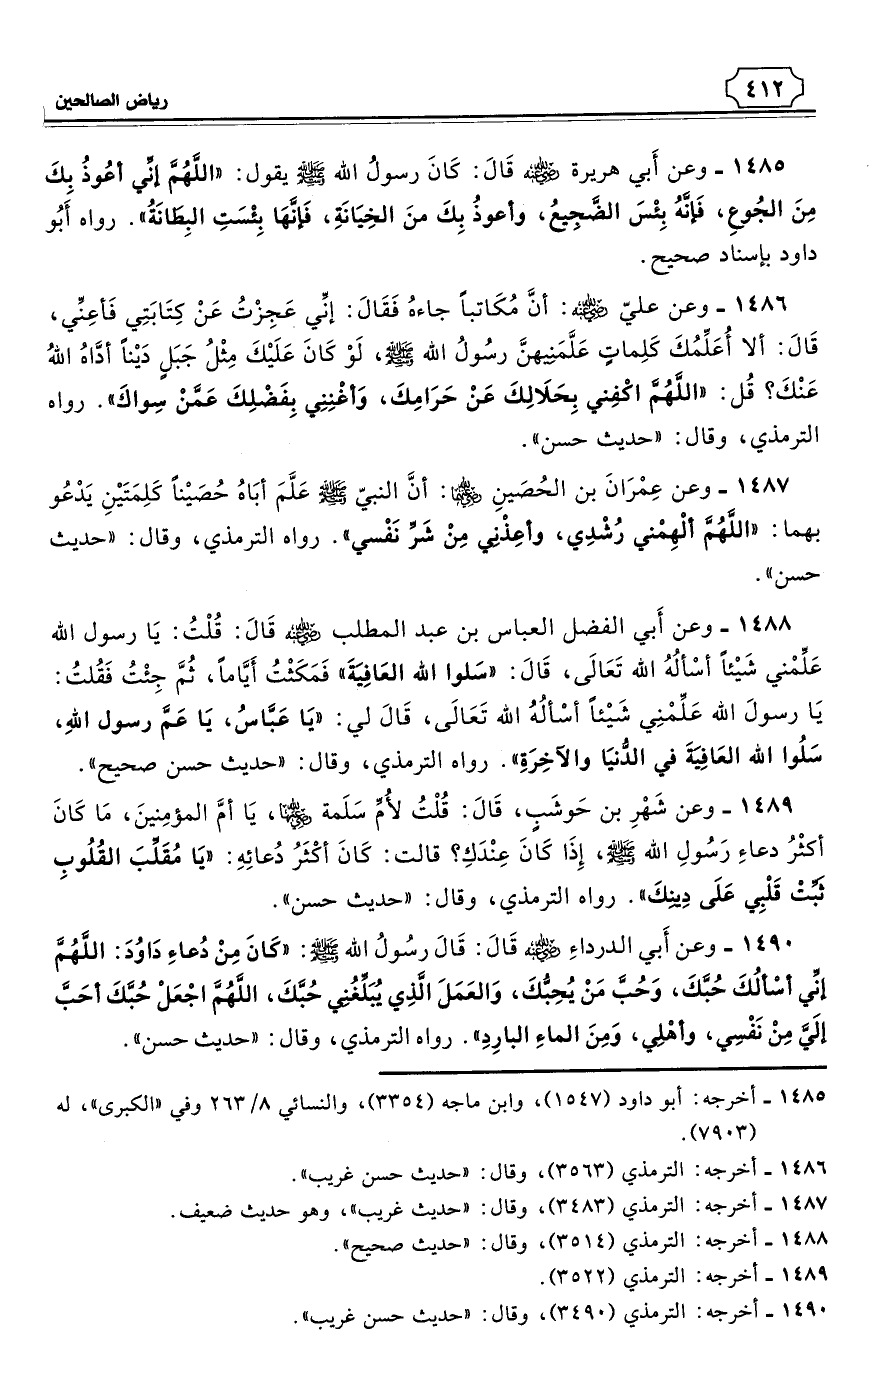 ٤١٢
رياض الصالحين
١٤٨٥ ـ وعن أَبي هريرة رضي الله عنه قَالَ: كَانَ رسولُ الله ﷺ يقول: «اللَّهُمَّ إنِّي أعُوذُ بِكَ
مِنَ الجُوعِ، فَإنَّهُ بِئْسَ الضَّجِيعُ، وأعوذُ بِكَ منَ الخِيَانَةِ، فَإنَّهَا بِئْسَتِ البِطَانَةُ». رواه أَبُو
داود بإسناد صحيح.
١٤٨٦ ـ وعن عليّ رضي الله عنه: أنَّ مُكَاتباً جاءهُ فَقَالَ: إنِّي عَجِزْتُ عَنْ كِتَابَتِي فَأعِنِّي،
قَالَ: ألا أُعَلِّمُكَ كَلِماتٍ عَلَّمَنِيهنَّ رسُولُ الله ﷺ، لَوْ كَانَ عَلَيْكَ مِثْلُ جَبَلٍ دَيْناً أدَّاهُ اللهُ
عَنْكَ؟ قُل: «اللَّهُمَّ اكْفِني بِحَلَالِكَ عَنْ حَرَامِكَ، وَأغْنِنِي بِفَضْلِكَ عَمَّنْ سِواكَ». رواه
الترمذي، وقال: «حديث حسن».
١٤٨٧ ـ وعن عِمْرَانَ بن الحُصَينِ رضي الله عنهما: أنَّ النبيّ ﷺ عَلَّمَ أبَاهُ حُصَيْناً كَلِمَتَيْنِ يَدْعُو
بهما: «اللَّهُمَّ ألْهِمْني رُشْدِي، وأعِذْنِي مِنْ شَرِّ نَفْسي». رواه الترمذي، وقال: «حديث
حسن».
١٤٨٨ ـ وعن أَبي الفضل العباس بن عبد المطلب رضي الله عنه قَالَ: قُلْتُ: يَا رسول الله
عَلِّمْني شَيْئاً أسْألُهُ الله تَعَالَى، قَالَ: «سَلوا الله العَافِيَةَ» فَمَكَثْتُ أَيَّاماً، ثُمَّ جِئْتُ فَقُلتُ:
يَا رسولَ الله عَلِّمْنِي شَيْئاً أسْألُهُ الله تَعَالَى، قَالَ لي: «يَا عَبَّاسُ، يَا عَمَّ رسول اللهِ،
سَلُوا الله العَافِيَةَ في الدُّنيَا والآخِرَةِ». رواه الترمذي، وقال: «حديث حسن صحيح».
١٤٨٩ ـ وعن شَهْرِ بن حَوشَبٍ، قَالَ: قُلْتُ لأُمِّ سَلَمة رضي الله عنها، يَا أمَّ المؤمِنينَ، مَا كَانَ
أكثْرُ دعاءِ رَسُولِ الله ﷺ، إذَا كَانَ عِنْدَكِ؟ قالت: كَانَ أكْثَرُ دُعائِهِ: «يَا مُقَلِّبَ القُلُوبِ
ثَبِّتْ قَلْبِي عَلَى دِينِكَ». رواه الترمذي، وقال: «حديث حسن».
١٤٩٠ ـ وعن أَبي الدرداءِ رضي الله عنه قَالَ: قَالَ رسُولُ الله ﷺ: «كَانَ مِنْ دُعاءِ دَاوُدَ: اللَّهُمَّ
إنِّي أسْألُكَ حُبَّكَ، وَحُبَّ مَنْ يُحِبُّكَ، وَالعَمَلَ الَّذِي يُبَلِّغُنِي حُبَّكَ، اللَّهُمَّ اجْعَلْ حُبَّكَ أحَبَّ
إلَيَّ مِنْ نَفْسِي، وأهْلِي، وَمِنَ الماءِ البارِدِ». رواه الترمذي، وقال: «حديث حسن».
١٤٨٥ ـ أخرجه: أبو داود (١٥٤٧)، وابن ماجه (٣٣٥٤)، والنسائي ٨/ ٢٦٣ وفي «الكبرى»، له
(٧٩٠٣).
١٤٨٦ ـ أخرجه: الترمذي (٣٥٦٣)، وقال: «حديث حسن غريب».
١٤٨٧ ـ أخرجه: الترمذي (٣٤٨٣)، وقال: «حديث غريب»، وهو حديث ضعيف.
١٤٨٨ ـ أخرجه: الترمذي (٣٥١٤)، وقال: «حديث صحيح».
١٤٨٩ ـ أخرجه: الترمذي (٣٥٢٢).
١٤٩٠ ـ أخرجه: الترمذي (٣٤٩٠)، وقال: «حديث حسن غريب».